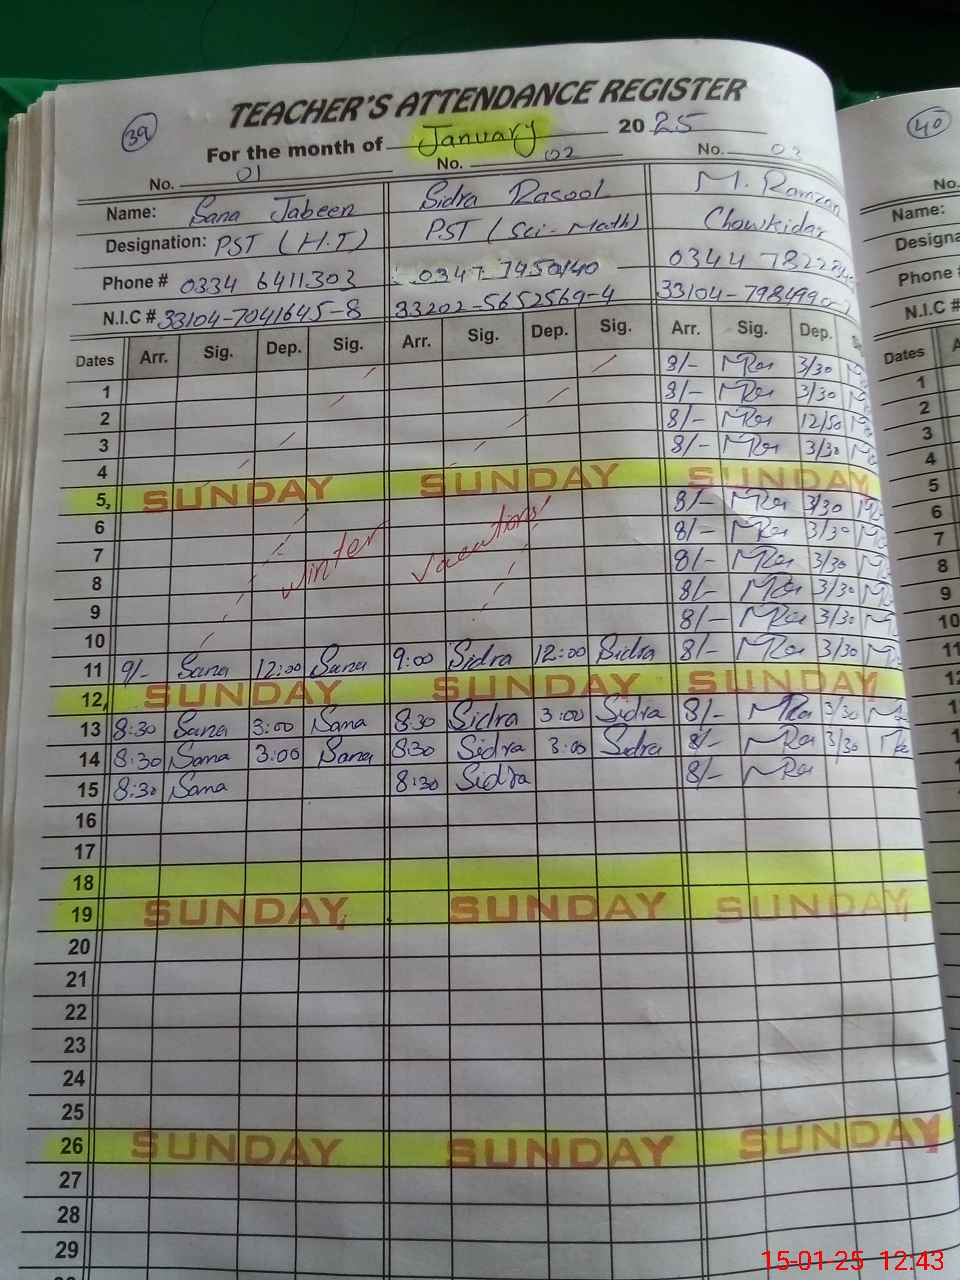 39
TEACHER'S ATTENDANCE REGISTER
For the month of January 2025
No. 01 No. 02 No. 03
Name: Sana Jabeen Sidra Rasool M. Ramzan
Designation: PST (H.T) PST (Sci-Math) Chowkidar
Phone # 0334 6411303 0347 7450140 0344
N.I.C # 33104-7041645-8 33202-5652569-4
Dates Arr. Sig. Dep. Sig. Arr. Sig. Dep. Sig. Arr. Sig. Dep.
1 8/- MRa 3/30
2 8/- MRa 3/30
3 8/- MRa 12/50
4 8/- MRa 3/30
5, SUNDAY SUNDAY SUNDAY
6 8/- MRa 3/30
7 8/- MRa 3/30
8 winter vacations 8/- MRa 3/30
9 8/- MRa 3/30
10 8/- MRa 3/30
11 9/- Sana 12:00 Sana 9:00 Sidra 12:00 Sidra 8/- MRa 3/30
12, SUNDAY SUNDAY SUNDAY
13 8:30 Sana 3:00 Sana 8:30 Sidra 3:00 Sidra 8/- MRa 3/30
14 8:30 Sana 3:00 Sana 8:30 Sidra 3:00 Sidra 8/- MRa 3/30
15 8:30 Sana 8:30 Sidra 8/- MRa
16
17
18
19 SUNDAY SUNDAY SUNDAY
20
21
22
23
24
25
26 SUNDAY SUNDAY SUNDAY
27
28
29
40
No.
Name:
Phone #
N.I.C #
Dates
1
2
3
4
5
6
7
8
9
10
11
15-01-25 12:43